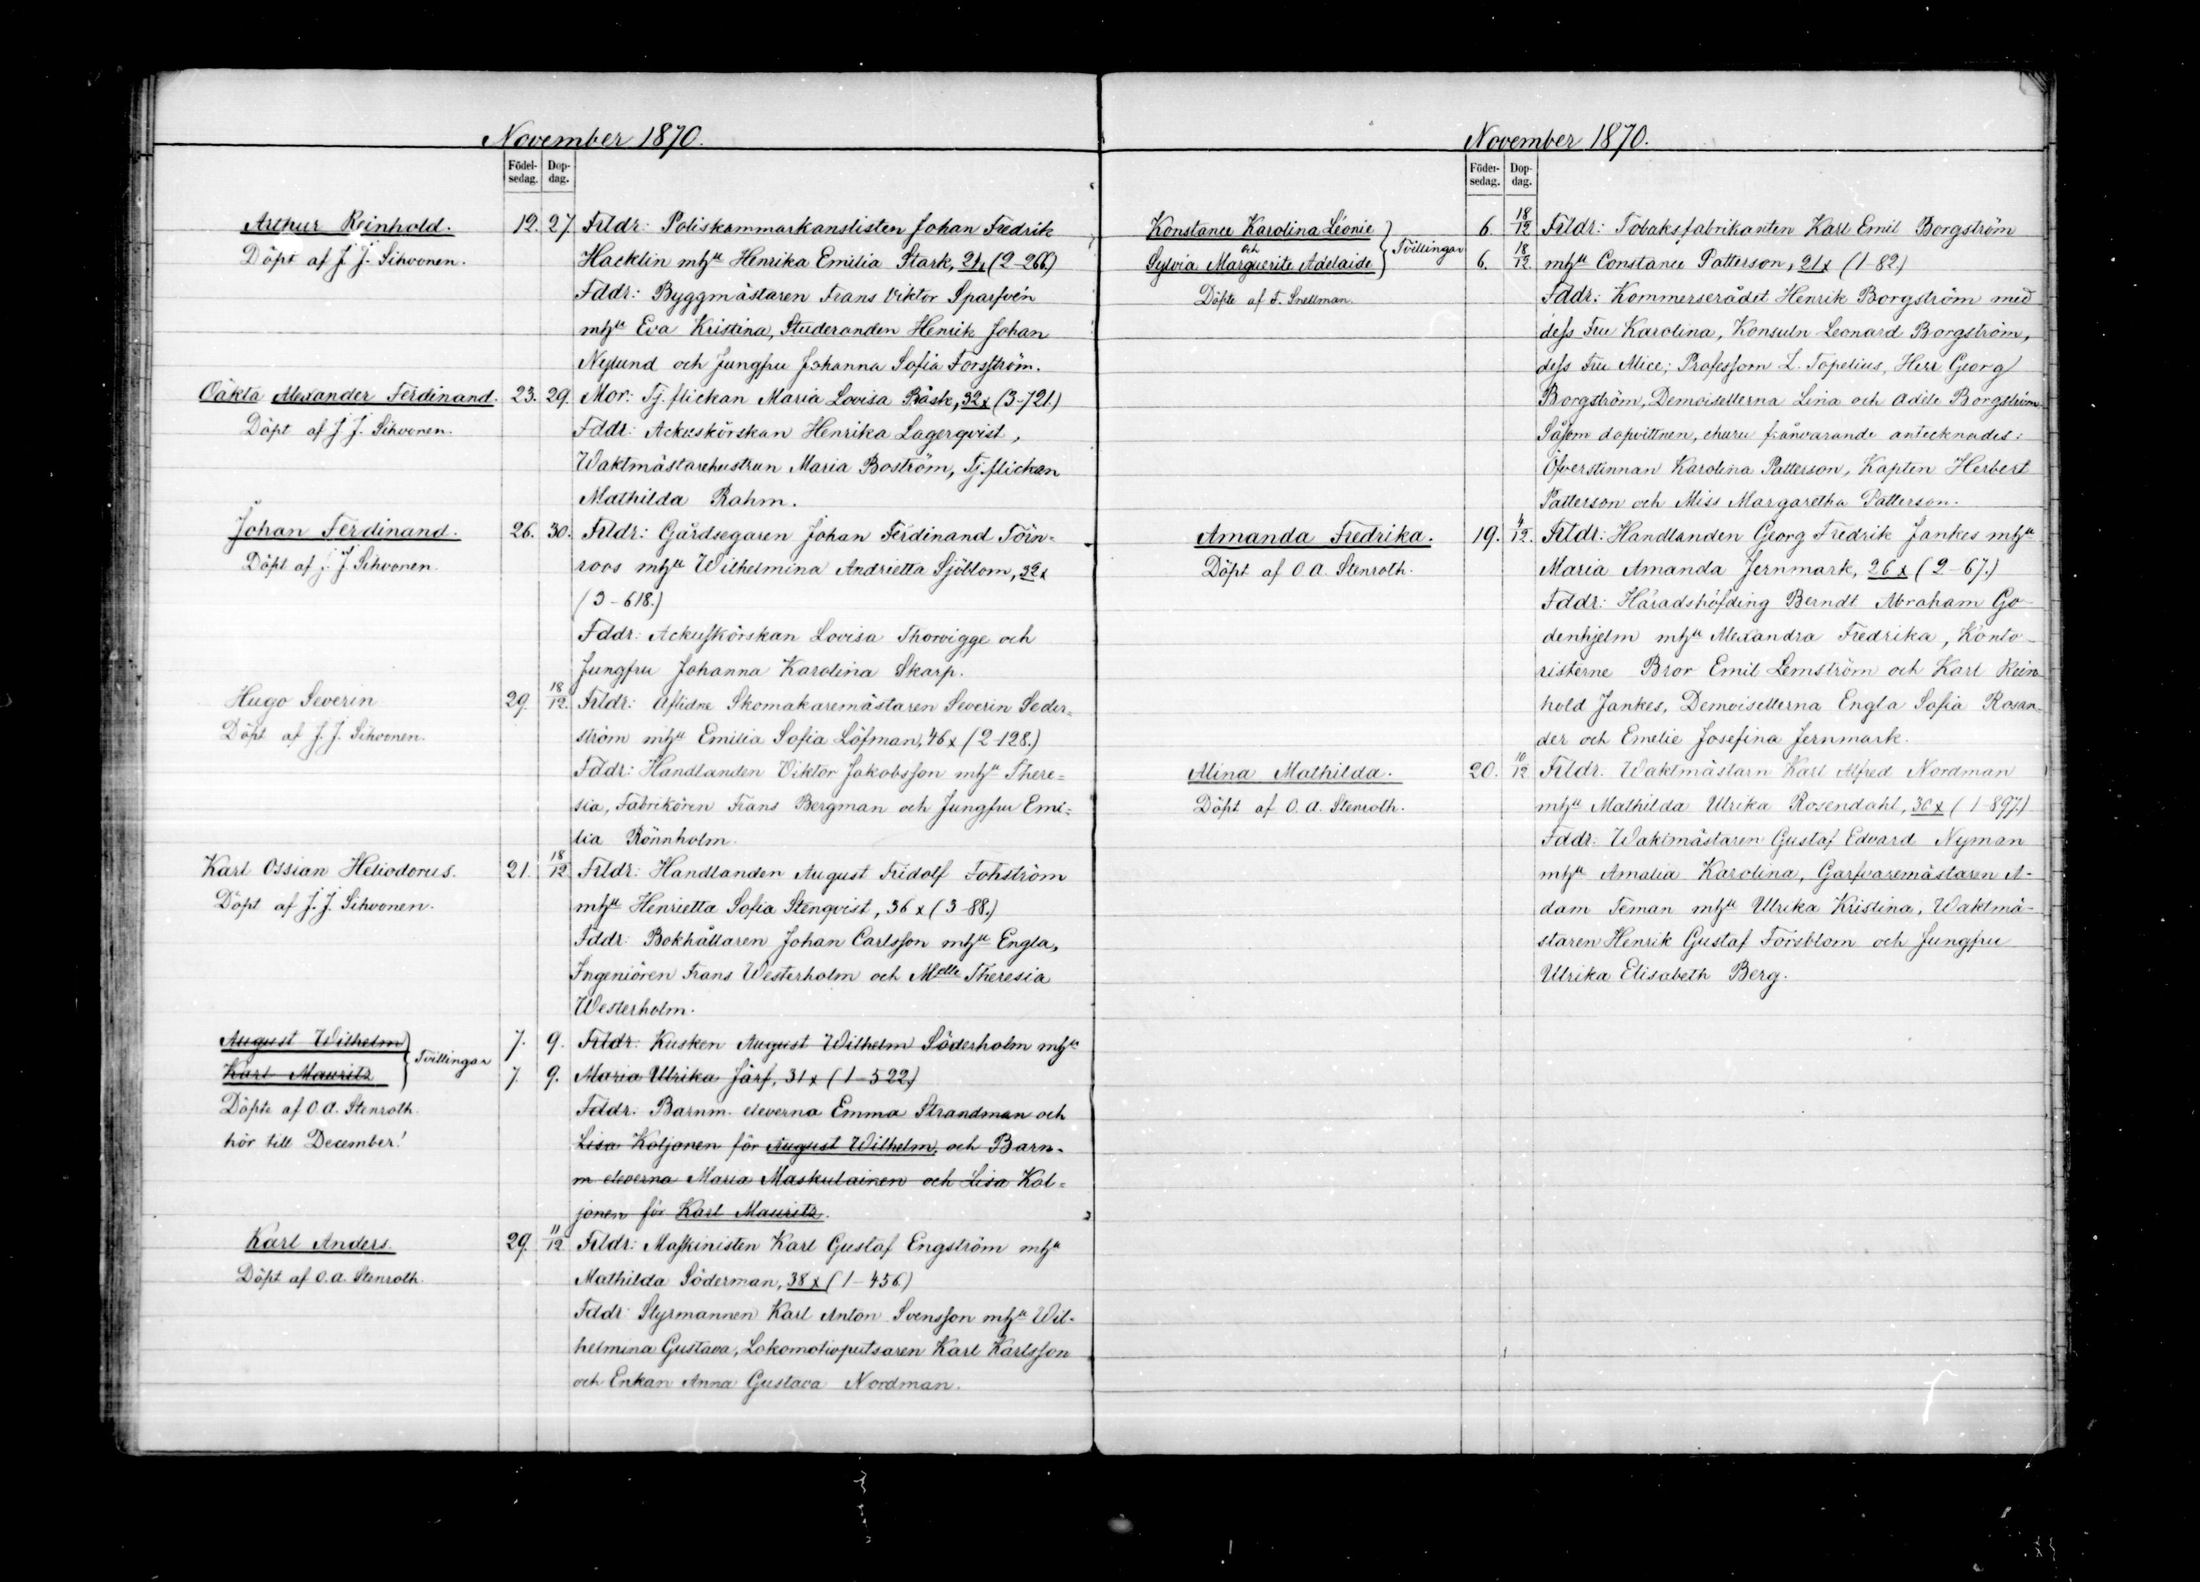 November 1870.
Födel-sedag. Dop-dag.
Arthur Reinhold. 12. 27. Frldr: Poliskammarkanslisten Johan Fredrik
Döpt af J. J. Sihvonen. Hacklin mhu Henrika Emilia Stark, (2-266)
Fddr: Byggmästaren Frans Viktor Sparfvén
mhu Eva Kristina, Studeranden Henrik Johan
Nylund och Jungfru Johanna Sofia Forsström.
Oäkta Alexander Ferdinand. 23. 29. Mor: Tj. flickan Maria Lovisa Bäsk, 32 x (3-721)
Döpt af J. J. Sihvonen. Fddr: Ackuskörskan Henrika Lagerqvist,
Waktmästarehustrun Maria Boström, Tj. flickan
Mathilda Rahm.
Johan Ferdinand. 26. 30. Frldr: Gårdsegaren Johan Ferdinand Törn-
Döpt af J. J. Sihvonen. roos mhu Wilhelmina Andrietta Sjöblom, 32 x
(3-618.)
Fddr: Ackuskörskan Lovisa Thorvigge och
Jungfru Johanna Karolina Skarp.
Hugo Severin 29. 18/12. Frldr: Aflidne Skomakaremästaren Severin Seder-
Döpt af J. J. Sihvonen. ström mhu Emilia Sofia Löfman, 46 x (2-128.)
Fddr: Handlanden Viktor Jakobsson mhu There-
sia, Fabrikören Frans Bergman och Jungfru Emi-
lia Rönnholm.
Karl Ossian Heliodorus. 21. 18/12 Frldr: Handlanden August Fridolf Fohström
Döpt af J. J. Sihvonen. mhu Henrietta Sofia Stenqvist, 36 x (3-88.)
Fddr: Bokhållaren Johan Carlsson mhu Engla,
Ingeniören Frans Westerholm och Mlle Theresia
Westerholm.
August Wilhelm } Tvillingar 7. 9. Frldr: Kusken August Wilhelm Söderholm mhu
Karl Mauritz 7. 9. Maria Ulrika Järf, 31 x (1-522)
Döpte af O. A. Stenroth. Fddr: Barnm. eleverna Emma Strandman och
hör till December! Lisa Koljonen för August Wilhelm, och Barn-
m eleverna Maria Maskulainen och Lisa Kol-
jonen för Karl Mauritz.
Karl Anders. 29. 11/12 Frldr: Maskinisten Karl Gustaf Engström mhu
Döpt af O. A. Stenroth. Mathilda Söderman, 38 x (1-456.)
Fddr: Styrmannen Karl Anton Svensson mhu Wil-
helmina Gustava, Lokomotivputsaren Karl Karlsson
och Enkan Anna Gustava Nordman.
November 1870.
Föder-sedag. Dop-dag.
Konstance Karolina Léonie } Tvillingar 6. 18/12 Frldr: Tobaksfabrikanten Karl Emil Borgström
och
Sylvia Marguerite Adelaide 6. 18/12 mhu Constance Patterson, 21 x (1-82.)
Döpte af F. Snellman. Fddr: Kommerserådet Henrik Borgström med
dess Fru Karolina, Konsuln Leonard Borgström,
dess Fru Alice; Professorn Z. Topelius, Herr Georg
Borgström, Demoisellerna Lina och Adèle Borgström
Såsom dopvittnen, ehuru frånvarande antecknades:
Öfverstinnan Karolina Patterson, Kapten Herbert
Patterson och Miss Margaretha Patterson.
Amanda Fredrika. 19. 4/12. Frldr: Handlanden Georg Fredrik Jankes mhu
Döpt af O. A. Stenroth. Maria Amanda Jernmark, 26 x (2-67.)
Fddr: Häradshöfding Berndt Abraham Go-
denhjelm mhu Alexandra Fredrika, Konto-
risterne Bror Emil Lemström och Karl Rein-
hold Jankes, Demoisellerna Engla Sofia Rosan-
der och Emelie Josefina Jernmark.
Alina Mathilda. 20. 10/12 Frldr. Waktmästarn Karl Alfred Nordman
Döpt af O. A. Stenroth. mhu Mathilda Ulrika Rosendahl, 30 x (1-897.)
Fddr: Waktmästaren Gustaf Edvard Nyman
mhu Amalia Karolina, Garfvaremästaren A-
dam Teman mhu Ulrika Kristina, Waktmä-
staren Henrik Gustaf Forsblom och Jungfru
Ulrika Elisabeth Berg.